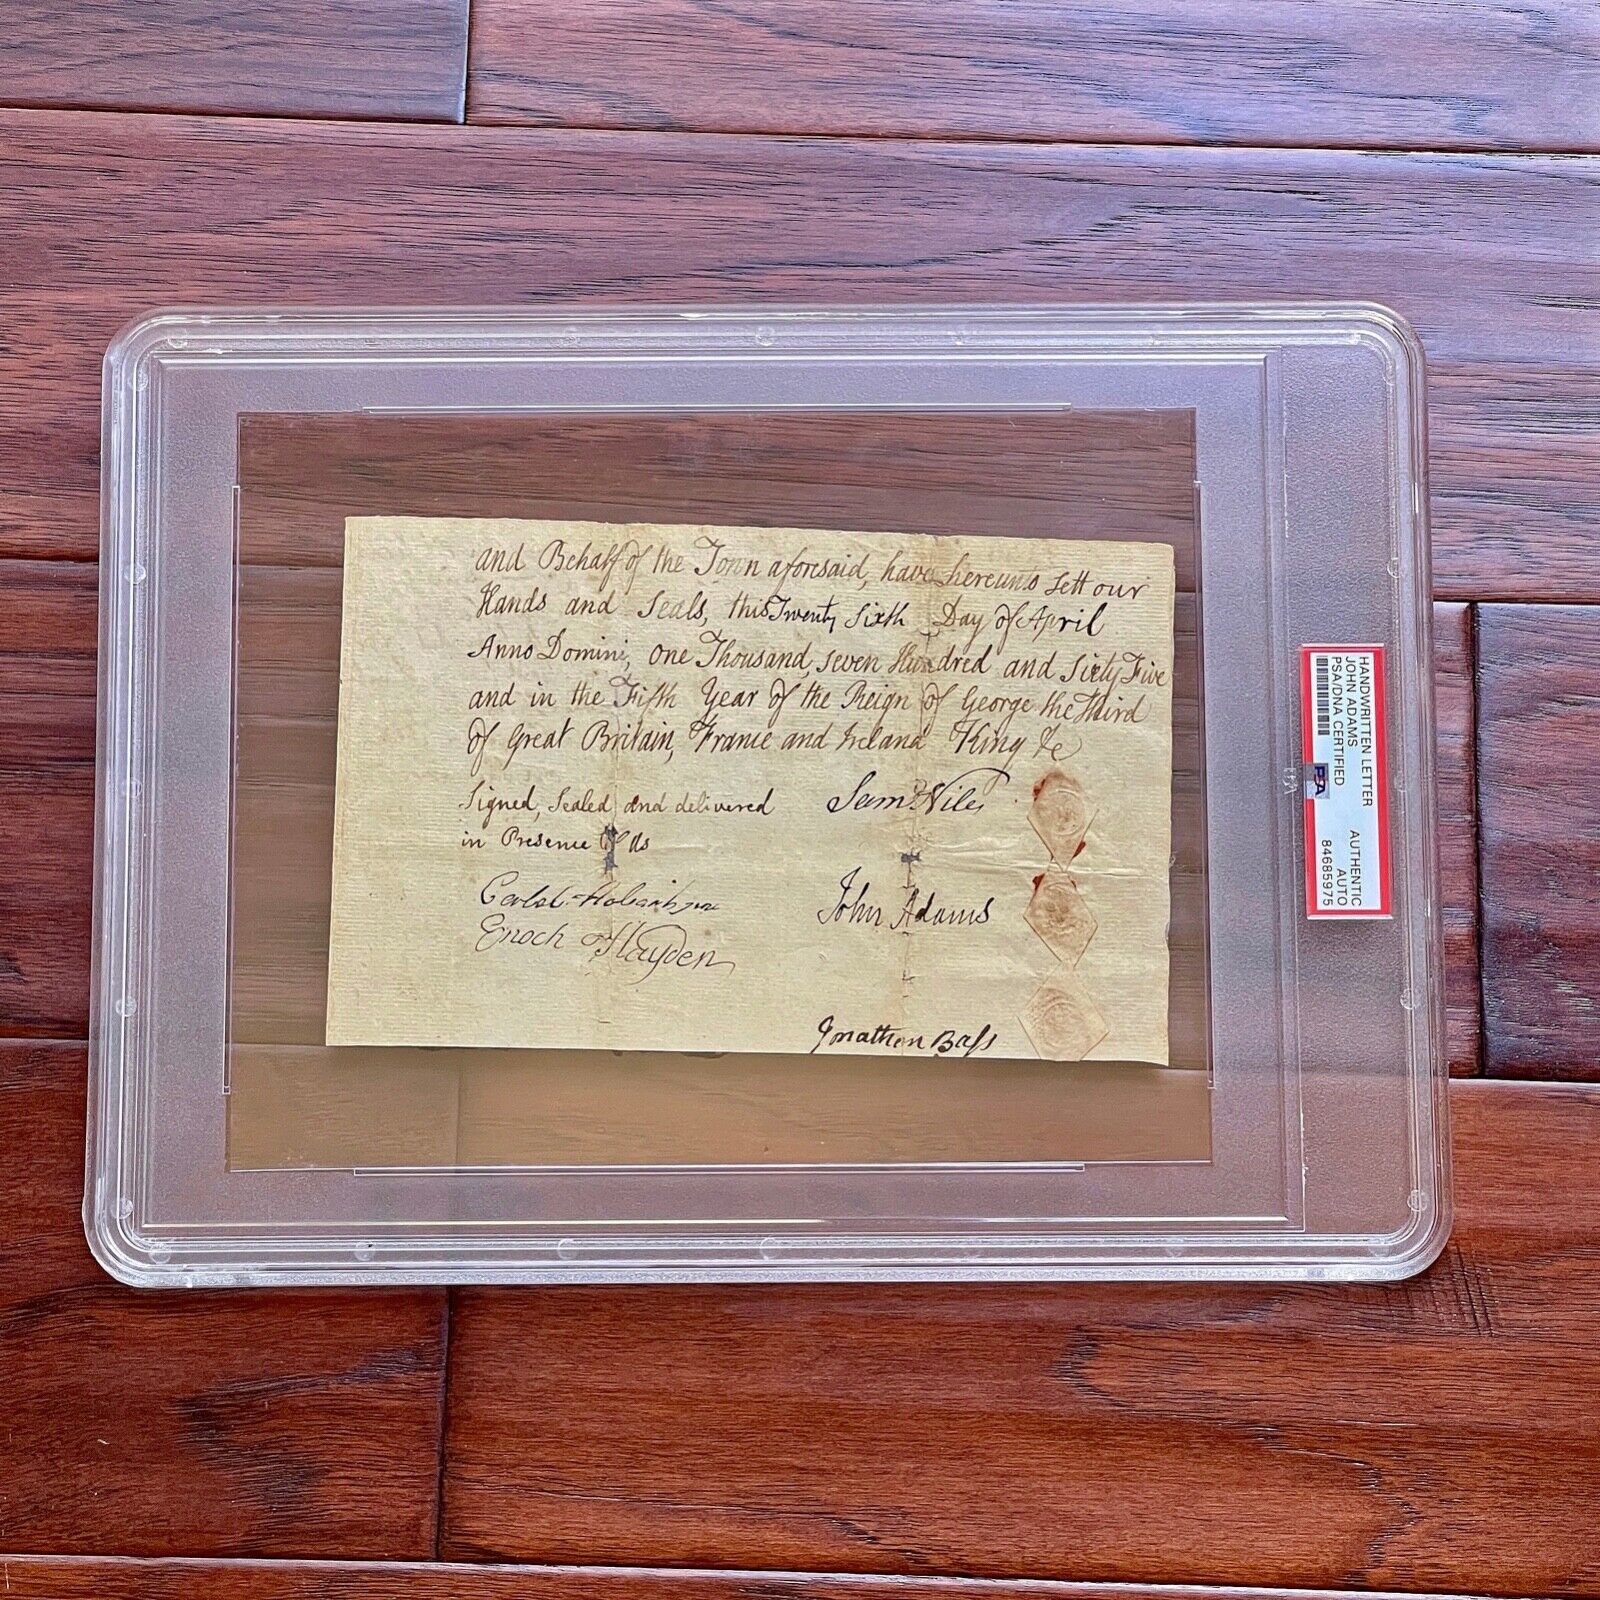 and Behalf of the Town aforesaid, have hereunto sett our
Hands and Seals, this Twenty Sixth Day of April
Anno Domini, one Thousand, seven Hundred and Sixty Five
and in the Fifth Year of the Reign of George the Third
of Great Britain, France and Ireland King &c
Signed, Sealed and delivered
in Presence of Us
Sam Niles
John Adams
Enoch Hayden
Jonathan Baſs
HANDWRITTEN LETTER
JOHN ADAMS
PSA/DNA CERTIFIED
AUTHENTIC
AUTO
84685975
PSA